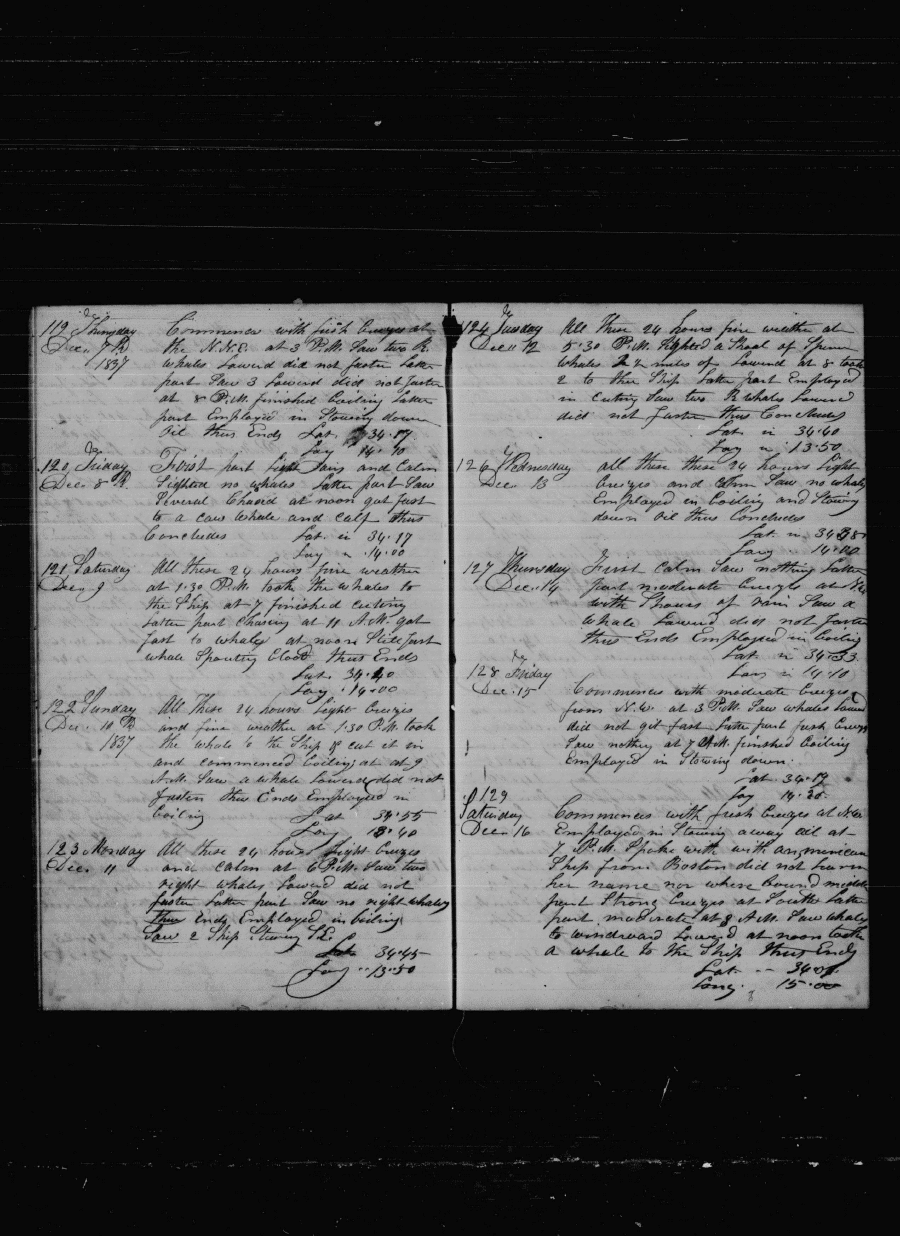 119 Thursday Commences with fresh breezes at
Dec. 7 R the N.N.E. at 3 P.M. Saw two R.
1837 whales Lowerd did not fasten Latter
part Saw 3 Lowerd did not fasten
at 8 P.M. finished boiling Latter
part Employed in Stowing down
Oil thus Ends Lat 34.17
Long 14.10
120 Friday First part Light airs and Calm
Dec. 8 R Sighted no whales Latter part Saw
Several Chased at noon got fast
to a cow whale and calf thus
Concludes Lat. in 34.17
Long " 14.00
121 Saturday All these 24 hours fine weather
Dec. 9 at 1.30 P.M. took the whales to
the Ship at 7 finished cutting
Latter part Chasing at 11 A.M. got
fast to whales at noon Still fast
whale Spouting Blood thus Ends
Lat. 34.40
Long. 14.00
122 Sunday All These 24 hours Light breezes
Dec. 10 R and fine weather at 1.30 P.M. took
1837 the whale to the Ship & cut it in
and commenced boiling at at 9
A.M. Saw a whale Lowerd did not
fasten thus Ends Employed in
boiling Lat 34.55
Long 13.40
123 Monday All these 24 hours Light breezes
Dec. 11 and calm at 6 P.M. Saw two
right whales Lowerd did not
fasten Latter part Saw no right whales
thus Ends Employed in boiling
Saw 2 Ship Stearing S.E.
Lat 34.45
Long " 13.50
124 Tuesday All These 24 hours fine weather at
Dec 12 5.30 P.M. Sighted a Shoal of Sperm
whales 2 miles of Lowerd at 8 took
2 to the Ship Latter part Employed
in cuting Saw two R whales Lowered
did not fasten thus Concludes
Lat. in 34.40
Long in 13.50
126 Wednesday all these these 24 hours Light
Dec. 13 breezes and calm Saw no whales
Employed in boiling and Stowing
down Oil thus Concludes
Lat. in 34.38
Long. 14.00
127 Thursday First Calm Saw nothing Latter
Dec. 14 part moderate breezes at
with Showers of rain Saw a
whale Lowerd did not fasten
thus Ends Employed in boiling
Lat in 34.33
Long in 14.10
128 Friday
Dec. 15 Commences with moderate breezes
from N.W. at 3 P.M. Saw whales Lowerd
did not git fast Latter part fresh breezes
Saw nothing at 7 A.M. finished boiling
Employed in Stowing down.
Lat 34.19
Long 14.20
129
Saturday Commences with fresh breezes at
Dec 16 Employed in Stowing away oil at
7 P.M. Spoke with with an american
Ship from Boston did not learn
her name nor where bound middle
part Strong breezes at South Latter
part moderate at 8 A.M. Saw whales
to windward Lowerd at noon took
a whale to the Ship thus Ends
Lat. " 34.07
Long. 15.00